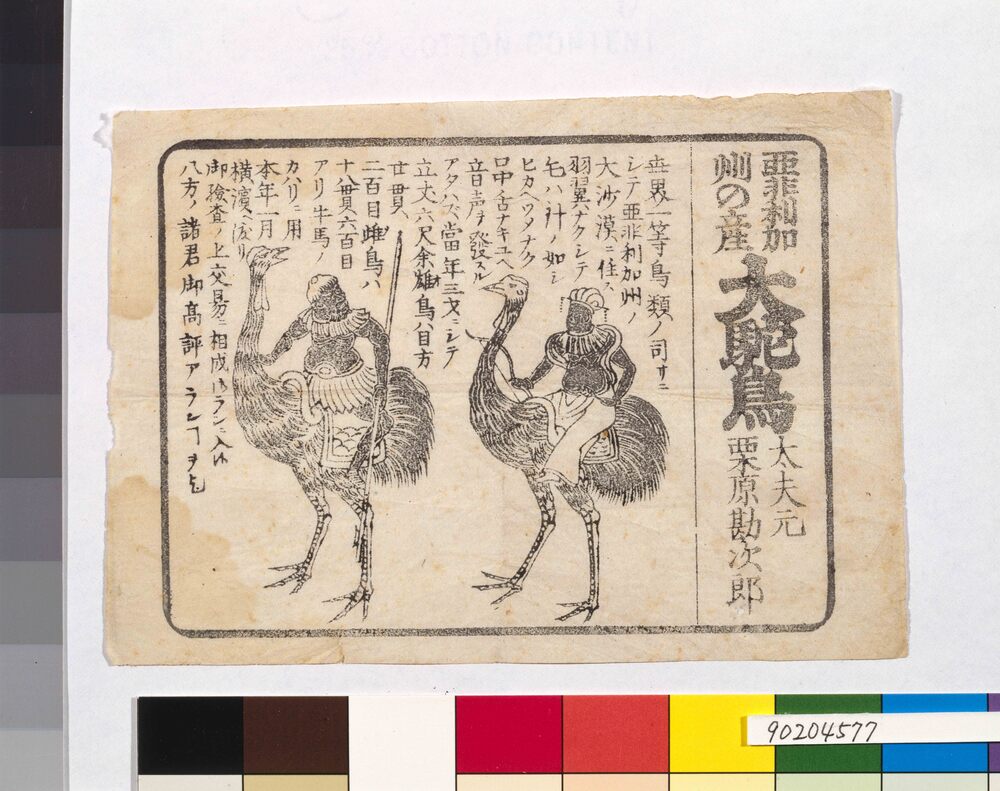 亜非利加
州の産
大駝鳥
太夫元
栗原勘次郎
世界一等鳥類ノ司サニ
シテ亜非利加州ノ
大沙漠ニ住ス
羽翼ナクシテ
毛ハ針ノ如シ
ヒカヘツメナク
口中ニ舌ナキユヘ
音声ヲ發スル
アタハズ當年三才ニシテ
立丈六尺余雄鳥ハ目方
廿貫
二百目雌鳥ハ
十八貫六百目
アリ牛馬ノ
カハリニ用
本年一月
横濱ヘ渡リ
御撿査ノ上交易ニ相成
八方ノ諸君御髙評アランコヲ乞
90204577